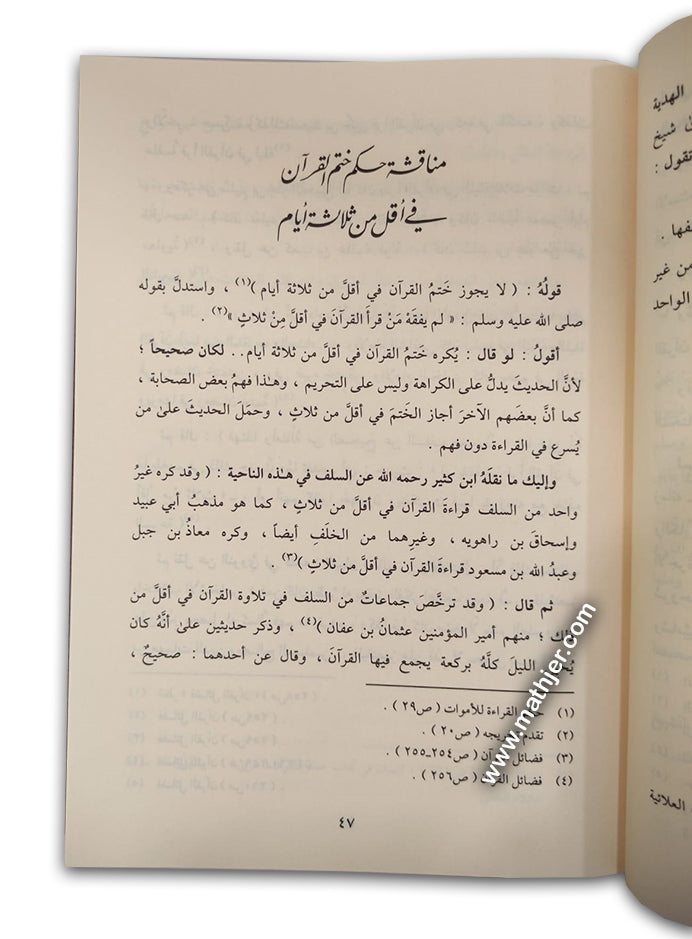 مناقشة حكم ختم القرآن
في أقل من ثلاثة أيام
قولُهُ : ( لا يجوز خَتمُ القرآن في أقلَّ من ثلاثة أيام )(١) ، واستدلَّ بقوله
صلى الله عليه وسلم : « لم يفقَهْ مَنْ قرأَ القرآنَ في أقلَّ مِنْ ثلاثٍ »(٢) .
أقولُ : لو قال : يُكره خَتمُ القرآن في أقلَّ من ثلاثة أيام.. لكان صحيحاً ؛
لأنَّ الحديثَ يدلُّ على الكراهة وليس على التحريم ، وهٰذا فهمُ بعض الصحابة ،
كما أنَّ بعضَهم الآخرَ أجاز الختمَ في أقلَّ من ثلاثٍ ، وحمَلَ الحديثَ علىٰ من
يُسرع في القراءة دون فهم .
وإليك ما نقلَهُ ابن كثير رحمه الله عن السلف في هٰذه الناحية : ( وقد كره غيرُ
واحد من السلف قراءةَ القرآن في أقلَّ من ثلاثٍ ، كما هو مذهبُ أبي عبيد
وإسحاقَ بن راهويه ، وغيرِهما من الخلَفِ أيضاً ، وكره معاذُ بن جبل
وعبدُ الله بن مسعود قراءةَ القرآن في أقلَّ من ثلاثٍ )(٣) .
ثم قال : ( وقد ترخَّصَ جماعاتٌ من السلف في تلاوة القرآن في أقلَّ من
ذلك ؛ منهم أمير المؤمنين عثمانُ بن عفان )(٤) ، وذكر حديثين علىٰ أنَّهُ كان
الليلَ كلَّهُ بركعة يجمع فيها القرآنَ ، وقال عن أحدهما : صحيحٌ ،
(١) القراءة للأموات ( ص٢٩ ) .
(٢) تقدم ( ص٢٠ ) .
(٣) فضائل القرآن ( ص٢٥٤ـ٢٥٥ ) .
(٤) فضائل القرآن ( ص٢٥٦ ) .
٤٧
www.mathjer.com
الهدية
شيخ
تقول :
من غير
الواحد
العلائية